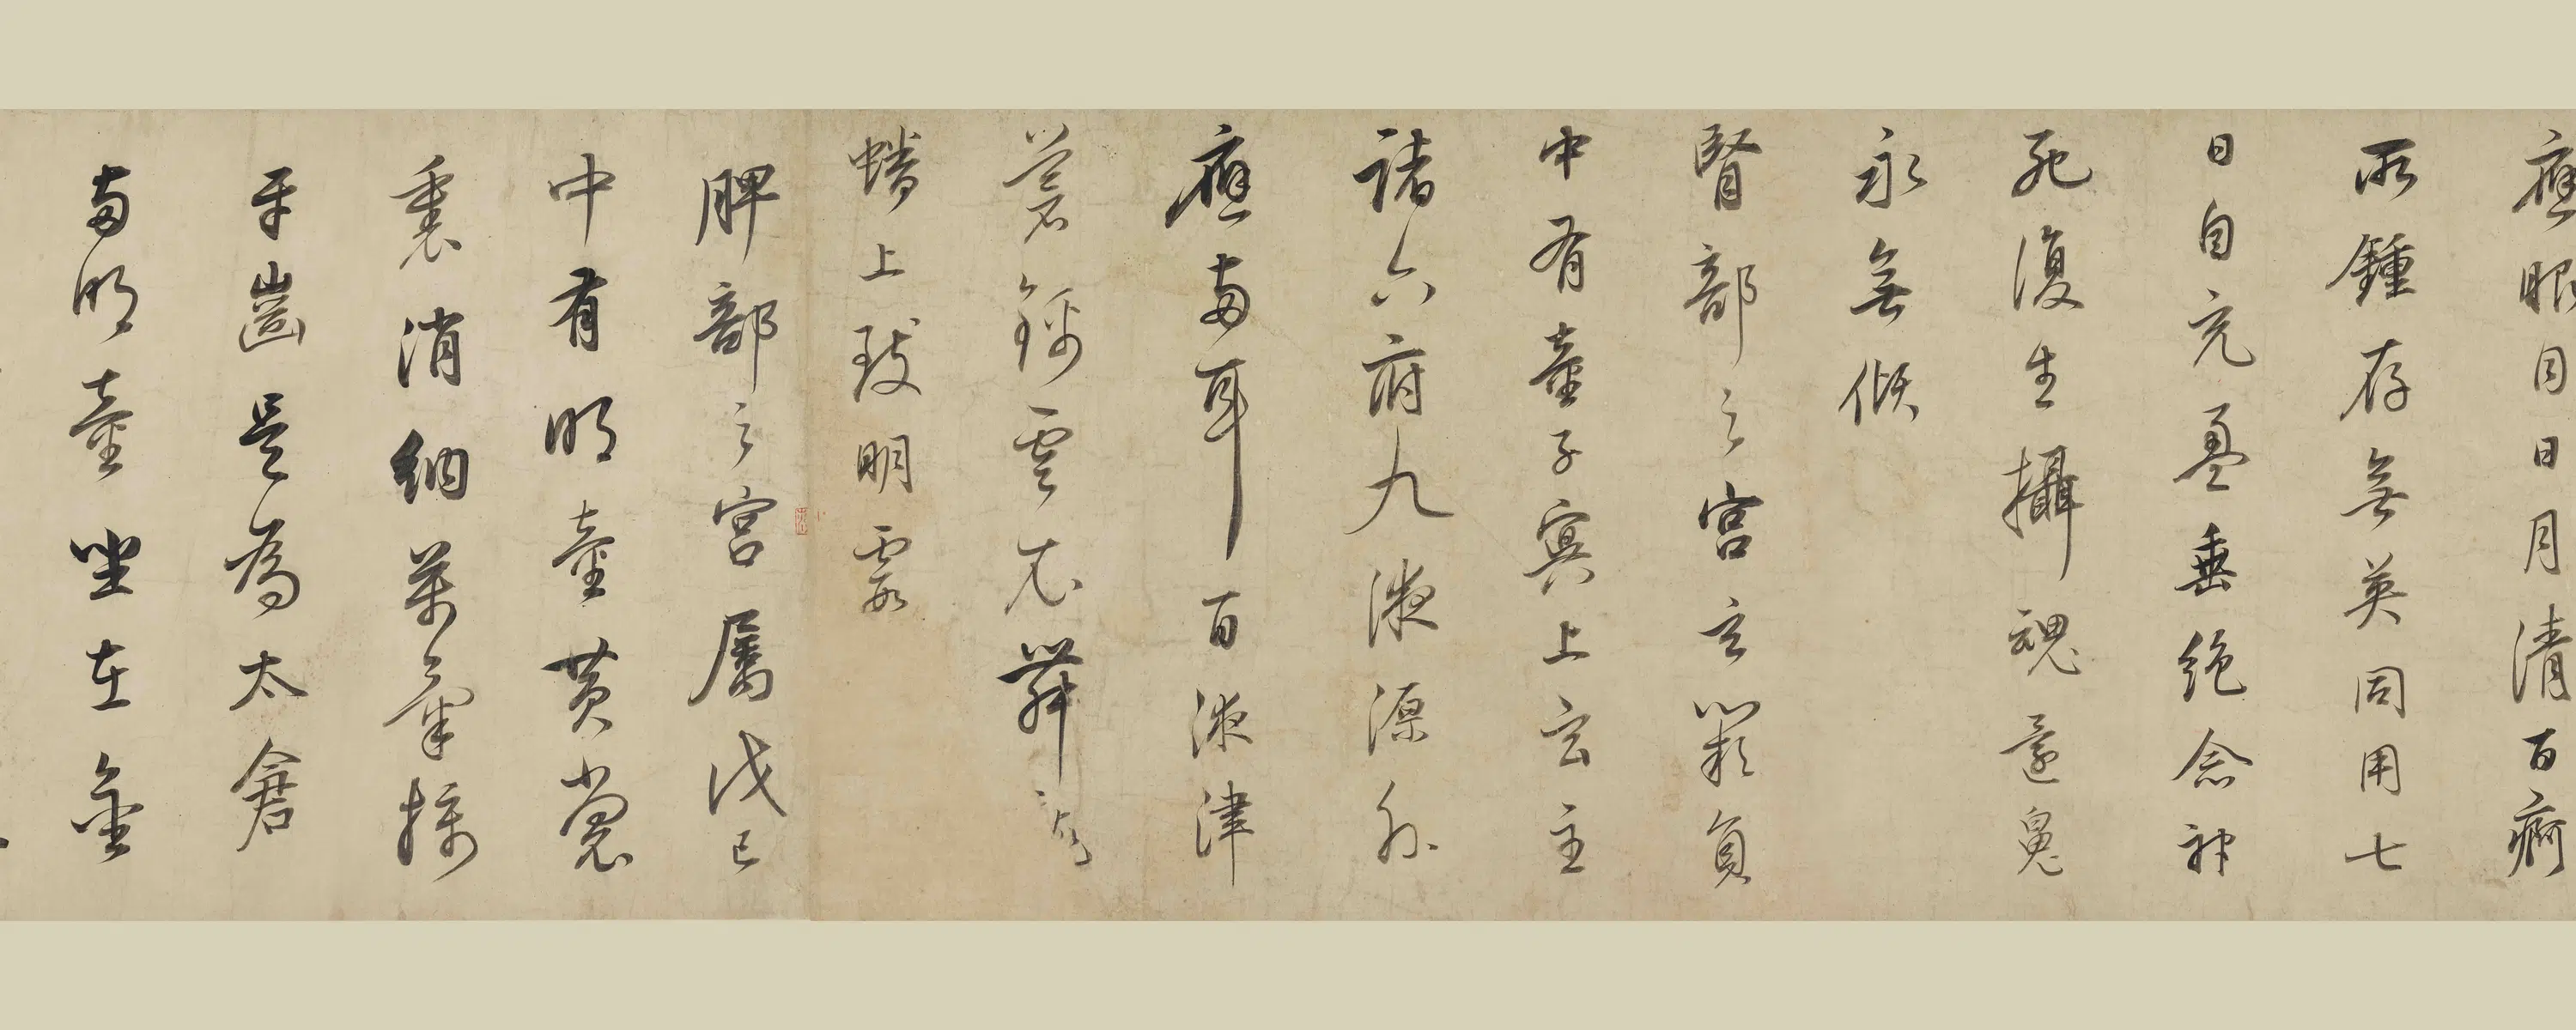 應眼目日月清百痾
所鍾存無英同用七
日自充盈垂絕念神
死復生攝魂還魄
永無傾
腎部之宮玄闕負
中有童子冥上玄主
諸六府九液源外
應兩耳百液津
蒼錦雲衣舞龍
蟠上致明霞
脾部之宮屬戊己
中有明童黃裳
裏消穀納氣搖
牙齒是為太倉
兩明童坐在金